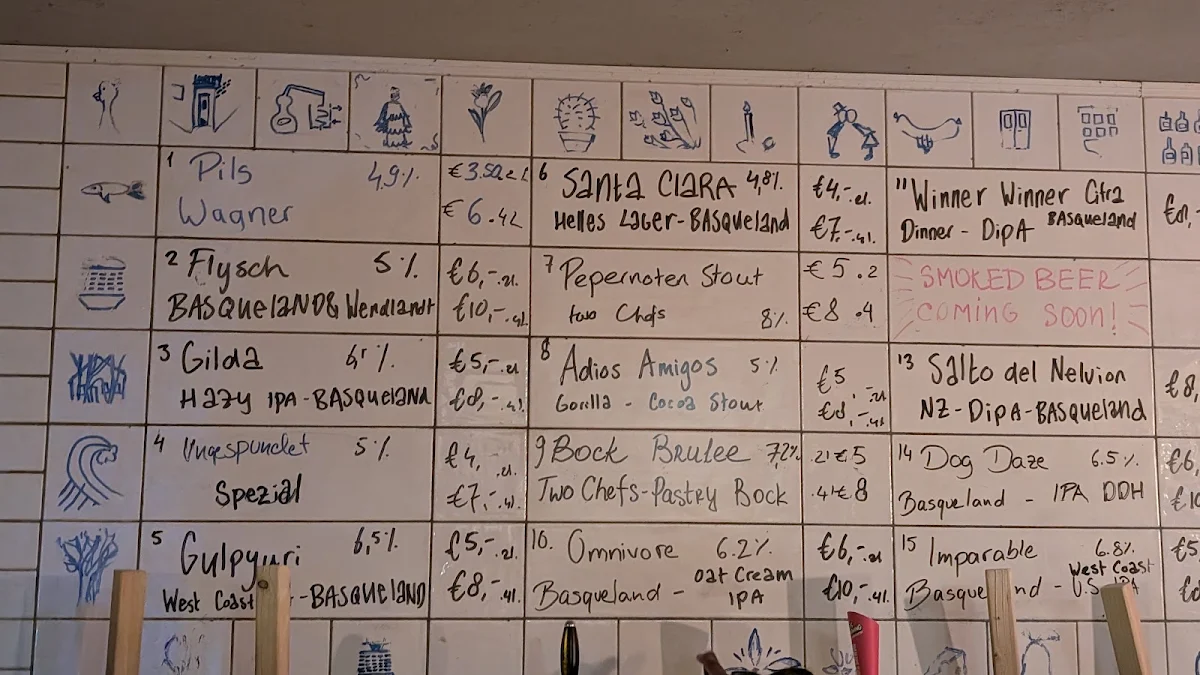 1 Pils 4,9% €3.50.2L
Wagner €6.4L
2 Flysch 5% €6,-.2l.
BASQUELAND & Wendlandt €10,-.4l.
3 Gilda 6,5% €5,-.2l
HAZY IPA-BASQUELAND €8,-.4l.
4 Ungespundet 5% €4,-.2l.
Spezial €7,-.4l.
5 Gulpyuri 6,5% €5,-.2l.
West Coast -BASQUELAND €8,-.4l.
6 Santa Clara 4,8% €4,-.2l.
Helles Lager-BASQueland €7,-.4l.
7 Pepernoten Stout €5 .2
two Chefs 8% €8 .4
8 Adios Amigos 5% €5,-.2l
Gorilla - Cocoa Stout €8,-.4l
9 Bock Brulee 7,2% .2l€5
Two Chefs-Pastry Bock .4l€8
10. Omnivore 6.2% €6,-.2l
Basqueland - Oat Cream IPA €10,-.4l.
11 Winner Winner Citra
Dinner - DipA BASqueland
SMOKED BEER
COMING SOON!
13 Salto del Nelvion €8,
NZ-DipA-BASqueland
14 Dog Daze 6.5% €6
Basqueland - IPA DDH €10
15 Imparable 6.8% €5
West Coast